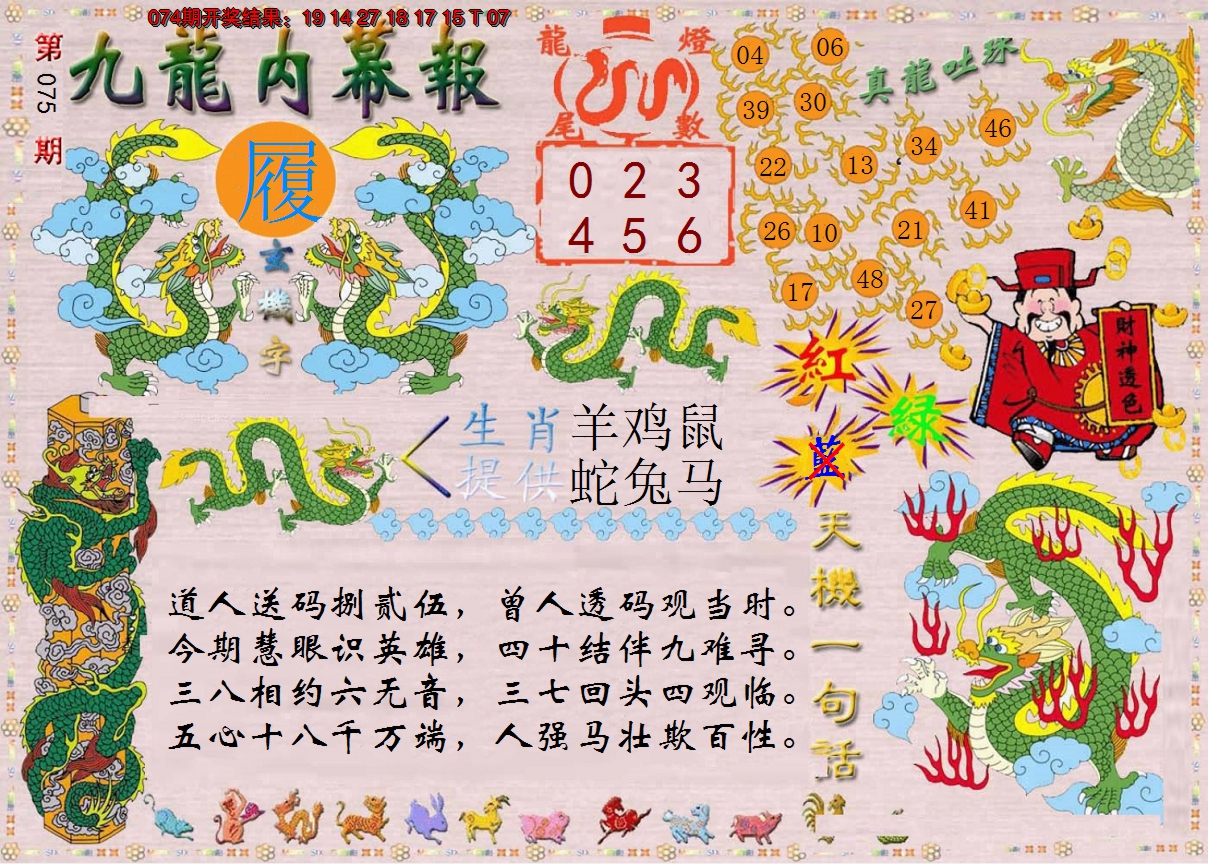 074期开奖结果：19 14 27 18 17 15 T 07
第
075
期
九龍内幕報
履
玄機字
龍燈
尾數
0 2 3
4 5 6
真龍吐珠
04
06
39
30
22
13
34
46
26
10
21
41
17
48
27
紅
綠
藍
財神透色
生肖
提供
羊鸡鼠
蛇兔马
道人送码捌贰伍，曾人透码观当时。
今期慧眼识英雄，四十结伴九难寻。
三八相约六无音，三七回头四观临。
五心十八千万端，人强马壮欺百性。
天機一句话